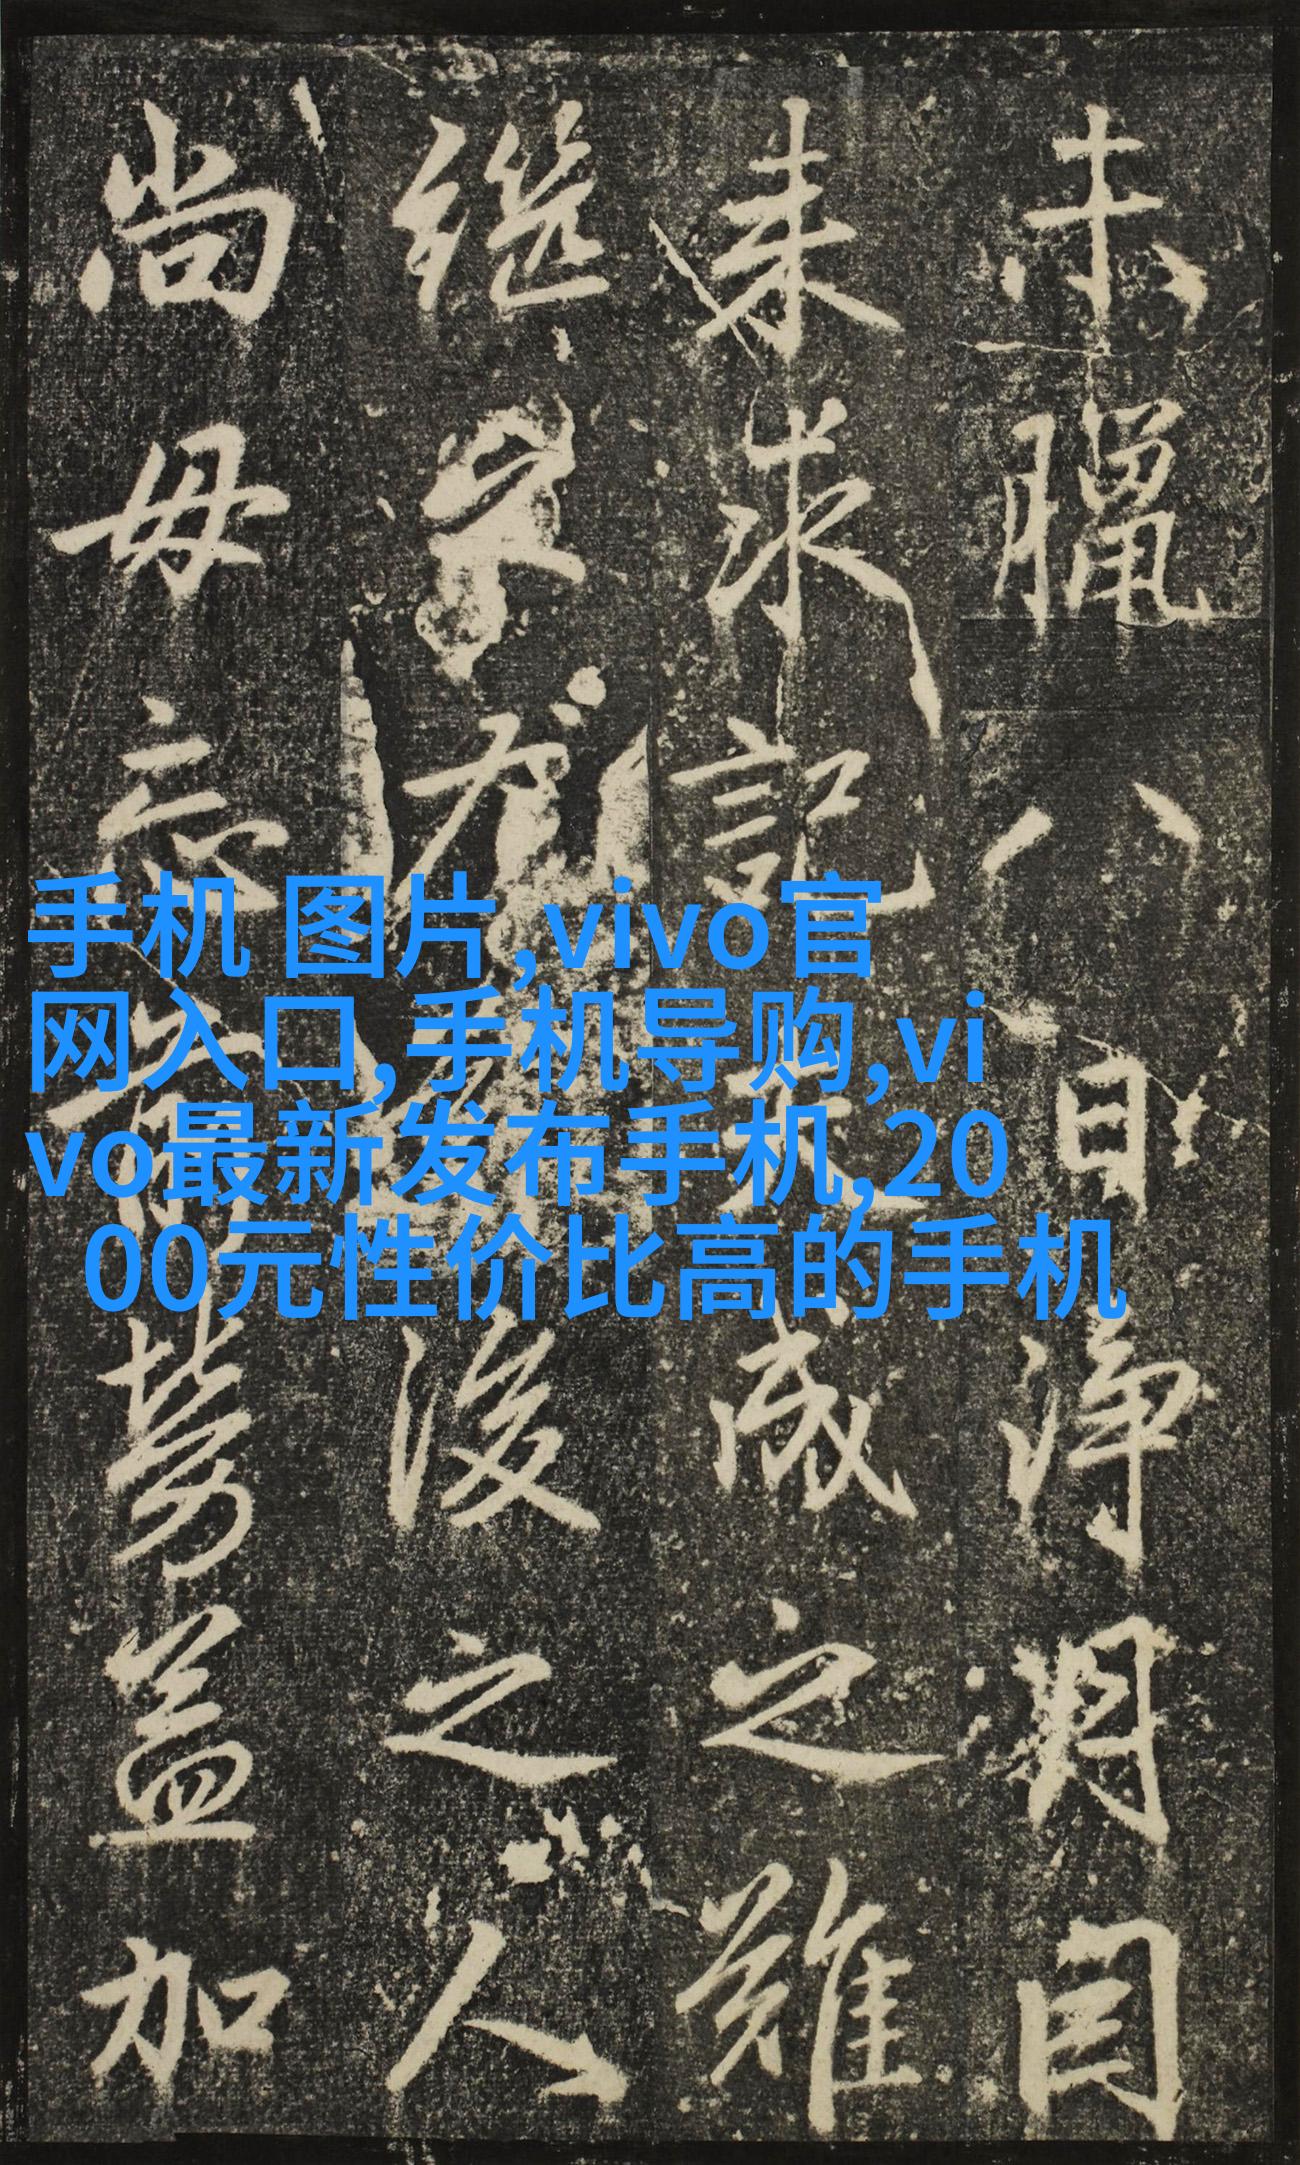 手机 图片,vivo官
网入口,手机导购,vi
vo最新发布手机,20
00元性价比高的手机
未臘八日淨潤
来求記成之雖
継後之人
尚毋忘勞益加